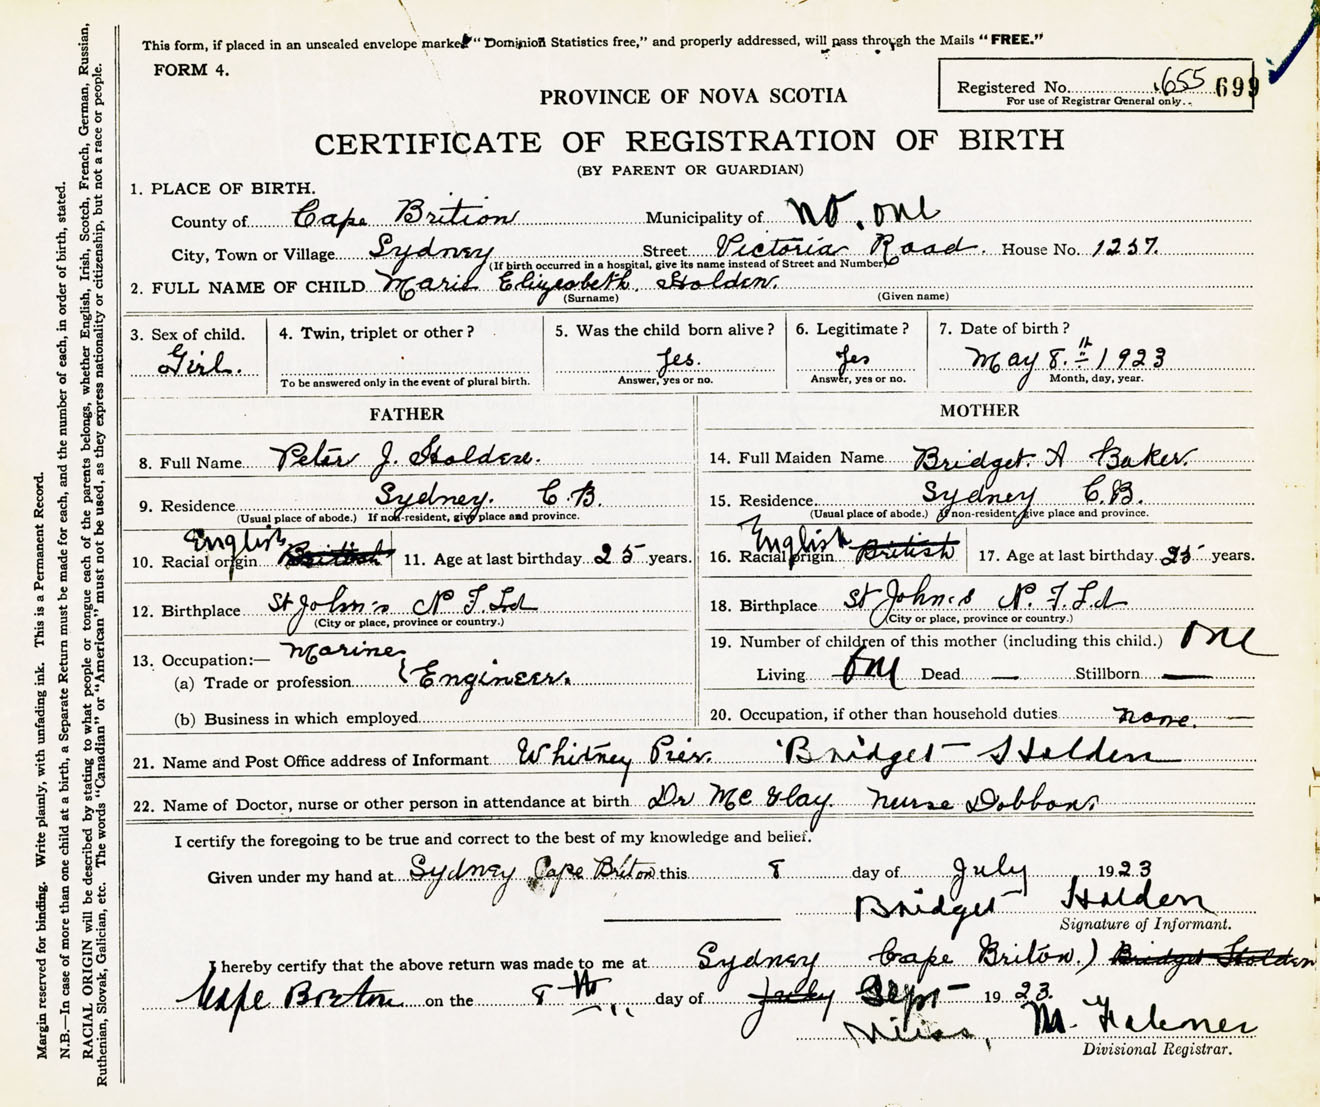 This form, if placed in an unsealed envelope marked "Dominion Statistics free," and properly addressed, will pass through the Mails "FREE."
FORM 4.
Registered No. 655 699
For use of Registrar General only.
PROVINCE OF NOVA SCOTIA
CERTIFICATE OF REGISTRATION OF BIRTH
(BY PARENT OR GUARDIAN)
1. PLACE OF BIRTH.
County of Cape Brition Municipality of No. one
City, Town or Village Sydney Street Victoria Road. House No. 1257.
(If birth occurred in a hospital, give its name instead of Street and Number)
2. FULL NAME OF CHILD Marie Elizeabeth Holden.
(Surname) (Given name)
3. Sex of child. 4. Twin, triplet or other? 5. Was the child born alive? 6. Legitimate? 7. Date of birth?
Girl. Yes. Yes May 8.th 1923
To be answered only in the event of plural birth. Answer, yes or no. Answer, yes or no. Month, day, year.
FATHER MOTHER
8. Full Name Peter J. Holden. 14. Full Maiden Name Bridget. A Baker.
9. Residence Sydney. C.B. 15. Residence Sydney C.B.
(Usual place of abode.) If non-resident, give place and province. (Usual place of abode.) If non-resident, give place and province.
10. Racial origin English British 11. Age at last birthday 25 years. 16. Racial origin English British 17. Age at last birthday 25 years.
12. Birthplace St John's N F. Ld 18. Birthplace St John's N. F. Ld
(City or place, province or country.) (City or place, province or country.)
13. Occupation:— Marine 19. Number of children of this mother (including this child.) one
(a) Trade or profession Engineer. Living one Dead — Stillborn —
(b) Business in which employed 20. Occupation, if other than household duties none. —
21. Name and Post Office address of Informant Whitney Pier. Bridget Holden
22. Name of Doctor, nurse or other person in attendance at birth Dr Nurse
I certify the foregoing to be true and correct to the best of my knowledge and belief.
Given under my hand at Sydney Cape Briton this 8 day of July 1923
Bridget Holden
Signature of Informant.
I hereby certify that the above return was made to me at Sydney Cape Briton.) Bridget Holden
Cape Breton on the 8 th day of July Sept 1923.
Miss, M. Falconer
Divisional Registrar.
Margin reserved for binding. Write plainly, with unfading ink. This is a Permanent Record.
N.B.—In case of more than one child at a birth, a Separate Return must be made for each, and the number of each, in order of birth, stated.
RACIAL ORIGIN will be described by stating to what people or tongue each of the parents belongs, whether English, Irish, Scotch, French, German, Russian,
Ruthenian, Slovak, Galician, etc. The words "Canadian" or "American" must not be used, as they express nationality or citizenship, but not a race or people.